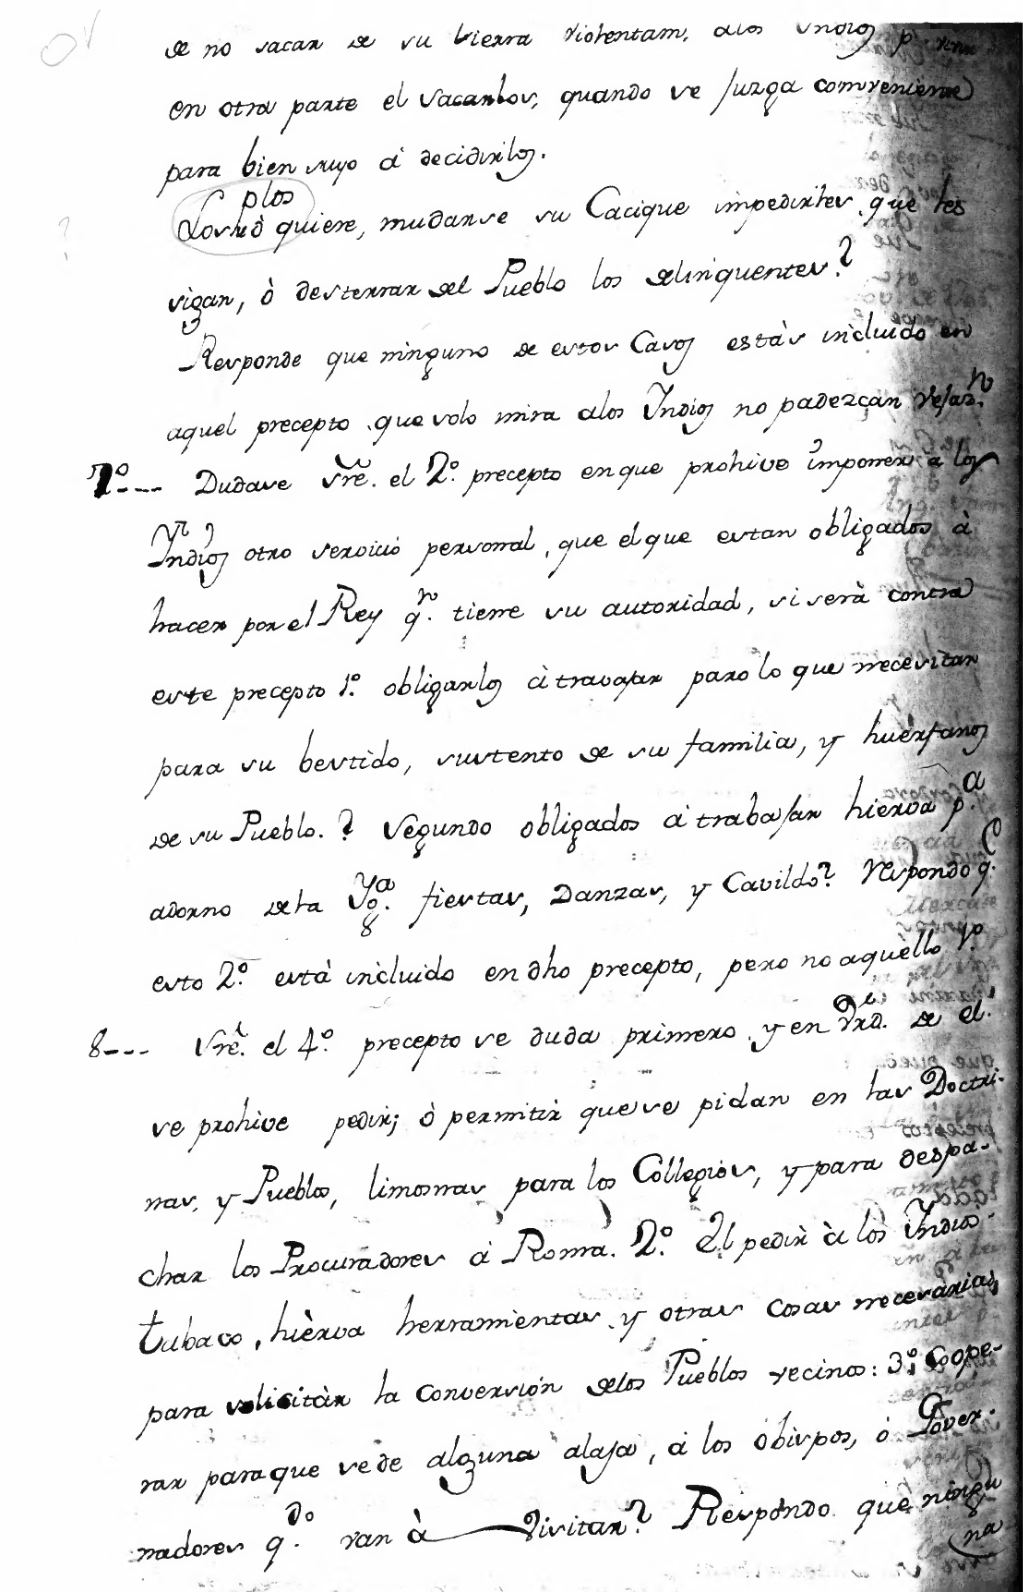 de no sacar de su tierra violentam. alos Yndios p
en otra parte el sacarlos, quando se juzga comveniente
para bien suyo â decidirlos.
plos
quiere, mudarse su Cacique impedirles, que les
sigan, ò desterrar del Pueblo los delinquentes?
Responde que ninguno de estos Casos estàs incluido en
aquel precepto, que solo mira alos Yndios no padezcan Vejaz.n
7º--- Dudase sre. el 2º. precepto en que prohive imponer à los
Yndios otro servicio personal, que el que estan obligados à
hacer por el Rey q.n tiene su autoridad, si serà contra
este precepto 1º. obligarlos à travajar para lo que necesitan
para su bestido, sustento de su familia, y huèrfanos
de su Pueblo.? Segundo obligados á trabajar hierva p.a
adorno dela Yg.a fiestas, Danzas, y Cavildo? Respondo q.
esto 2º. està incluido en dho precepto, pero no aquello 1º.
8--- Sre. el 4º. precepto se duda primero, y en de el
se prohive pedir; ò permitir que se pidan en las Doctri-
nas, y Pueblos, limosnas para los Collegios, y para despa-
char los Procuradores á Roma. 2º. El pedir à los Yndios
tabaco, hierva herramientas, y otras cosas necesàrias
para solicitàr la Conversiòn delos Pueblos vecinos: 3º. Coope-
rar para que se de alguna alaja, á los obispos, ó Gover-
nadores q.do van à Visitar? Respondo que ningu
na